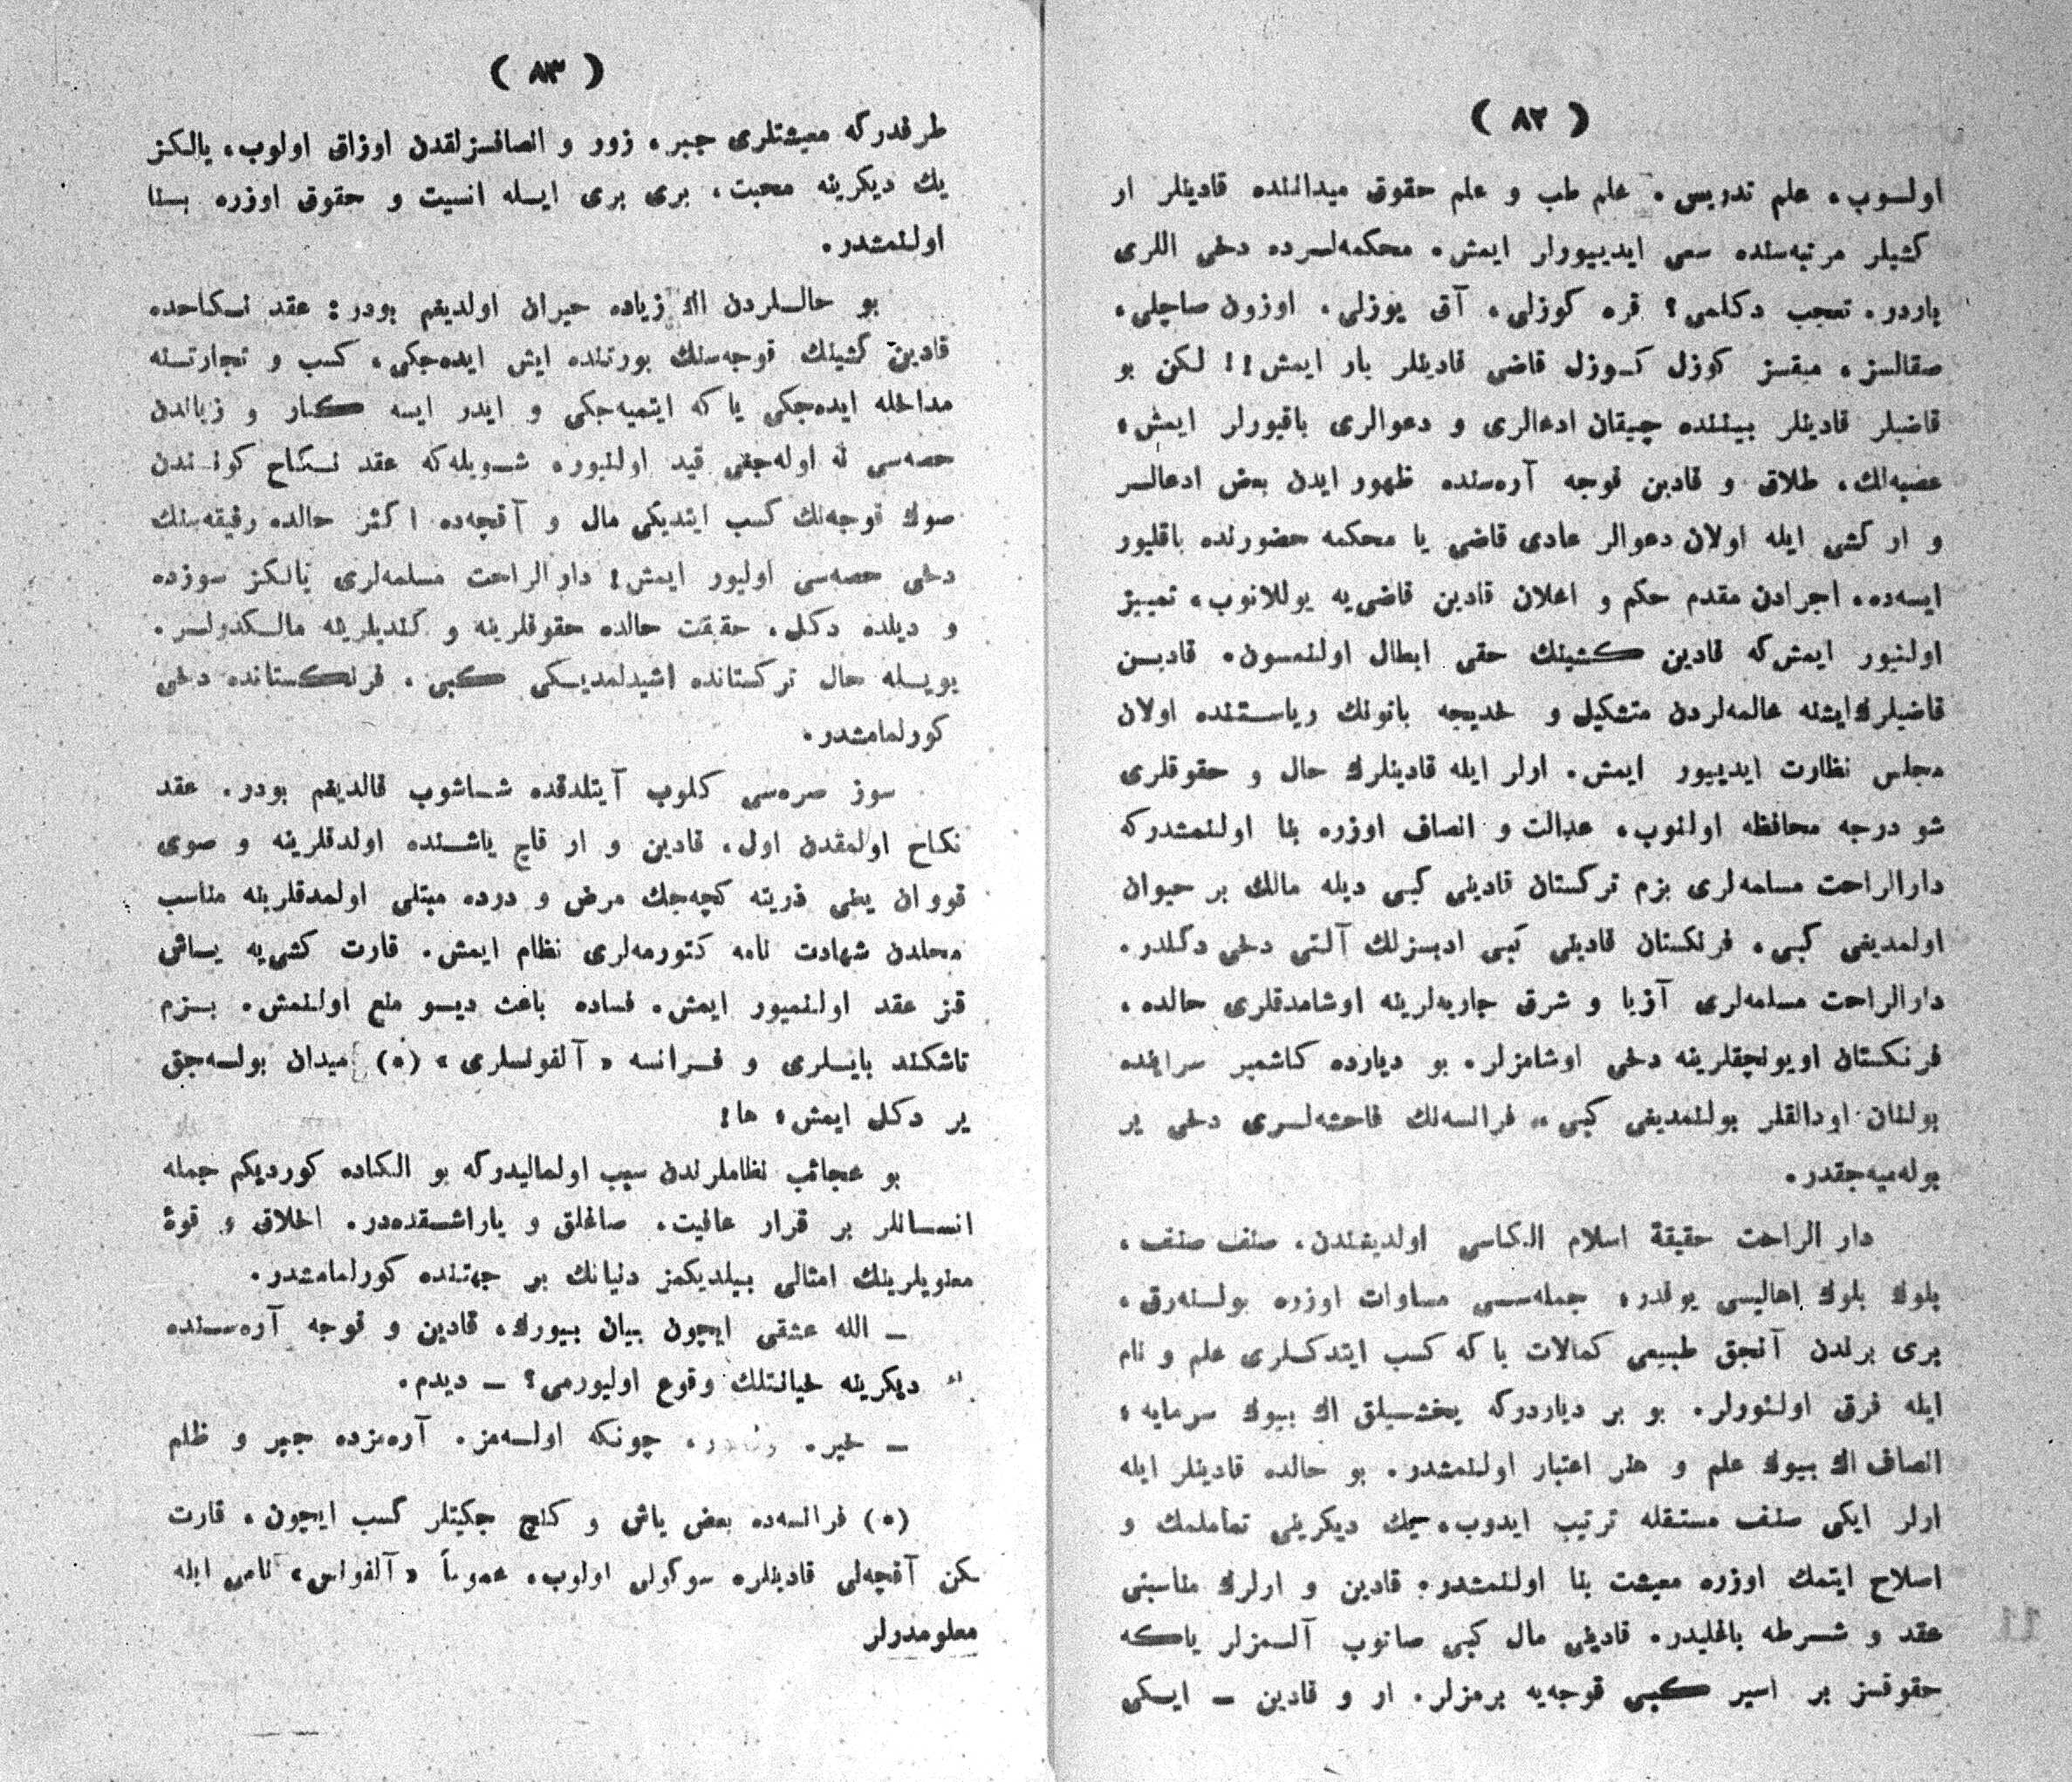 ( ۸۲ )
اولـوب، علم تدریسی، علم طب و علم حقوق میداننده قادینلر ار
کشیلر مرتبه‌سنده سعی ایدییورلر ایمش. محکمه‌لـرده دخی اللری
باردر. تعجب دکلمی؟ قره کوزلی، آق یوزلی، اوزون صاچلی،
صقالسز، میقسز کوزل کـوزل قاضی قادینلر بار ایمش!! لکن بو
قاضیلر قادینلر بیننده چیقان ادعالری و دعوالری باقیورلر ایمش؛
عصبه‌لك، طلاق و قادین قوجه آره‌سنده ظهور ایدن بعض ادعالـر
و ار کشی ایله اولان دعوالر عادی قاضی یا محکمه حضورنده باقلیور
ایسه‌ده، اجرادن مقدم حکم و اعلان قادین قاضی‌یه یوللانوب، تمییز
اولنیور ایمش‌که قادین کشینك حقی ابطال اولنمسون. قادیـن
قاضیلرك ایشنه عالمه‌لردن متشکیل و خدیجه بانونك ریاسـتنده اولان
مجلس نظارت ایدییور ایمش. ارلر ایله قادینلرك حال و حقوقلری
شو درجه محافظه اولنوب، عدالت و انصاف اوزره بنا اولنمشدرکه
دارالراحت مسلمه‌لری بزم ترکستان قادینی کبی دیله مالك بر حیوان
اولمدیغی کبی، فرنکستان قادینی کبی ادبسزلك آلتی دخی دکلدر.
دارالراحت مسلمه‌لری آزیا و شرق جاریه‌لرینه اوشامدقلری حالده،
فرنکستان اویونچقلرینه دخی اوشامزلر. بو دیارده کاشمیر سراینده
بولنان اودالقلر بولنمدیغی کبی، فرانسه‌نك فاحشه‌لـری دخی یر
بوله‌میه‌جقدر.
دار الراحت حقیقة اسلام الکاسی اولدیغندن، صنف صنف،
بلوك بلوك اهالیسی یوقدر؛ جمله‌سـی مساوات اوزره بولـنه‌رق،
بری برلندن آنجق طبیعی کمالات یا که کسب ایتدکـلری علم و نام
ایله فرق اولنورلر. بو بر دیاردرکه یخشـیلق اك بیوك سرمایه؛
انصاف اك بیوك علم و هنر اعتبار اولنمشدر. بو حالده قادینلر ایله
ارلر ایکی صنف مستقله ترتیب ایدوب، یك دیکرینی تماملمك و
اصلاح ایتمك اوزره معیشت بنا اولنمشدر. قادین و ارلرك مناسبتی
عقد و شـرطه باغلیدر. قادینی مال کبی صاتوب آلـمزلر یاکه
حقوقسز بر اسیر کبی قوجه‌یه برمزلر. ار و قادین ـ ایـکی
( ۸۳ )
طرفدرکه معیشتلری جبر، زور و انصافسزلقدن اوزاق اولوب، یالکز
یك دیکرینه محبت، بری بری ایـله انسیت و حقوق اوزره بـنا
اولنمشدر.
بو حالـلردن اك زیاده حیران اولدیغم بودر: عقد نـکاحده
قادین کشینك قوجه‌سنك یورتنده ایش ایده‌جکی، کسب و تجارتـنه
مداخله ایده‌جکی یا که ایتمیه‌جکی و ایدر ایسه کـار و زیاندن
حصه‌سی نه اوله‌جغی قید اولنیور، شـویله‌که عقد نـکاح کونـندن
صوك قوجه‌نك کسب ایتدیکی مال و آقچه‌ده اکثر حالده رفیقه‌سنك
دخی حصه‌سی اولیور ایمش! دار الراحت مسلمه‌لری یالکز سوزده
و دیلده دکل، حقیقت حالده حقوقلرینه و کندیلرینه مالـکدرلـر.
بویـله حال ترکستانده اشیدلمدیـکی کبی، فرنکستانده دخی
کورلمامشدر.
سوز صره‌سی کلوب آیتلدقده شـاشوب قالدیغم بودر. عقد
نکاح اولمقدن اول، قادین و ار قاچ یاشـنده اولدقلرینه و صوی
قووان یعنی ذرینه کچه‌جك مرض و درده مبتلی اولمدقلرینه مناسب
محلدن شهادت نامه کتورمه‌لری نظام ایمش. قارت کشی‌یه یـاش
قز عقد اولـنمیور ایمش. فساده باعث دیـو منع اولـنمش. بـزم
تاشکند بایـلری و فـرانسه «آلفونسلری» (*) میدان بولـه‌جق
یر دکل ایمش، ها!
بو عجائب نظاملرندن سبب اولمالیدرکه بو الکاده کوردیکم جمله
انسـانلر بر قرار عافیت، صاغلق و یاراشـقده‌در. اخلاق و قوۀ
معنویلرینك امثالی بیلدیکمز دنیانك بر جهتنده کورلمامشدر.
ـ الله عشقی ایچون بیان بیورك، قادین و قوجه آره‌سـنده
دیکرینه خیانتلك وقوع اولیورمی؟ ـ دیدم.
ـ خیر. چونکه اولـه‌مز. آره‌مزده جبر و ظلم
(*) فرانسه‌ده بعض یاش و کنچ جکیتلر کسب ایچون، قارت
لکن آقچه‌لی قادینلره سوکولی اولوب، عموماً «آلفونس» نامی ایله
معلومدرلر